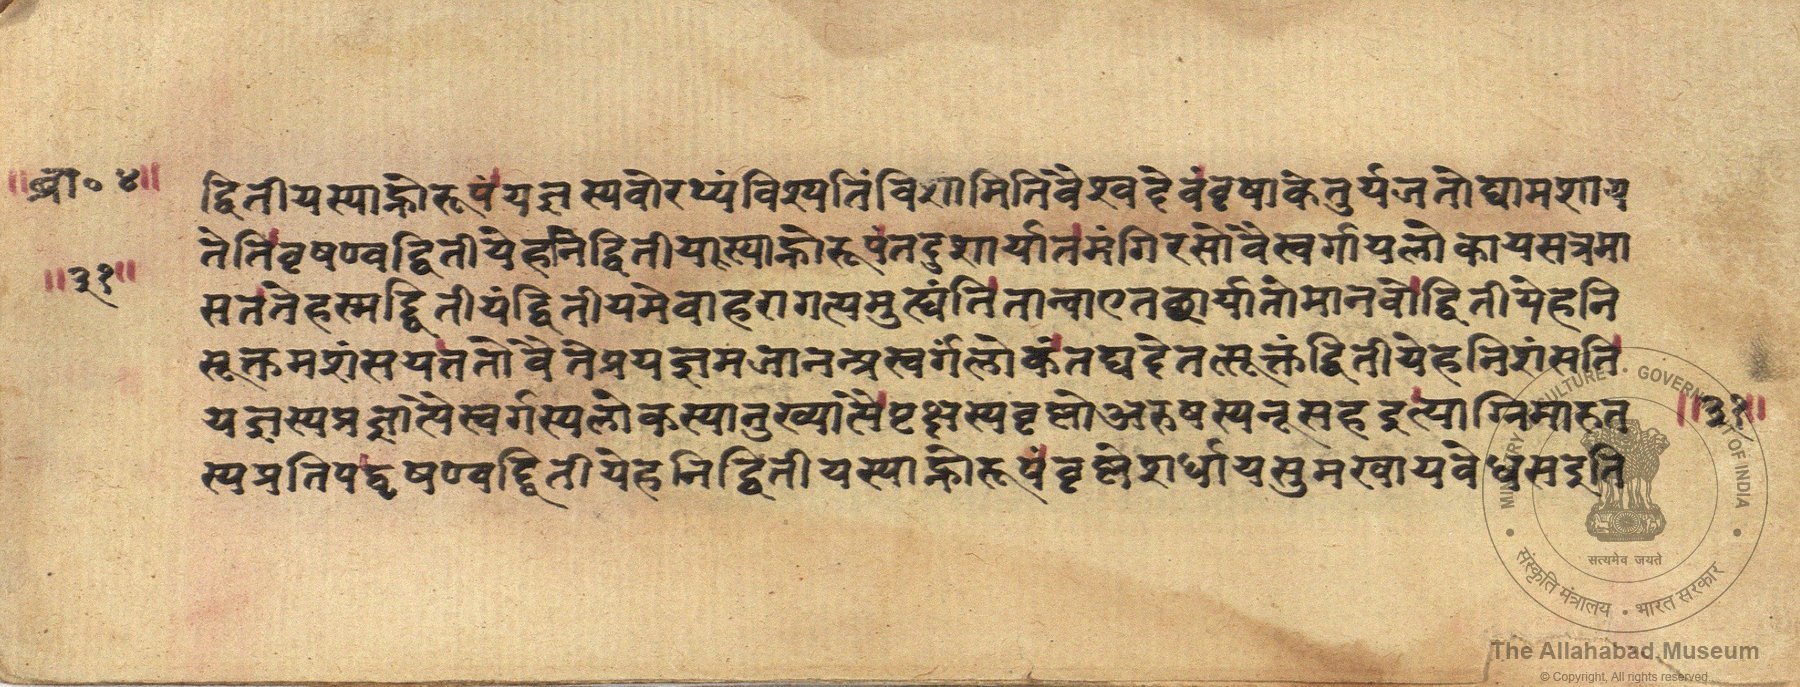 ॥ब्रा० ४॥
द्वितीयस्याह्नोरूपंयज्ञस्यवोरथ्यंविश्पतिंविशामितिवैश्वदेवंवृषाकेतुर्यजतोद्यामशाय
तेतिवृषण्वद्द्वितीयेहनिद्वितीयास्याह्नोरूपंतदुशार्यातमंगिरसोवैस्वर्गायलोकायसत्रमा
॥३१॥
सततेहस्मद्द्वितीयंद्वितीयमेवाहरागत्यमुह्यंतितान्वाएतछार्यातोमानवोद्वितीयेहनि
सूक्तमशंसयततोवैतेप्रयज्ञमजानन्प्रस्वर्गंलोकंतद्यदेतत्सूक्तंद्वितीयेहनिशंसति
यज्ञस्यप्रज्ञात्यैस्वर्गस्यलोकस्यानुख्यात्यैपृक्षस्यवृष्णोअरुषस्यनूसहइत्याग्निमारुत
॥३१॥
स्यप्रतिपद्वृषण्वद्द्वितीयेहनिद्वितीयस्याह्नोरूपंवृष्णेशर्धायसुमखायवेधसइति
MINISTRY OF CULTURE • GOVERNMENT OF INDIA
सत्यमेव जयते
संस्कृति मंत्रालय • भारत सरकार
The Allahabad Museum
© Copyright, All rights reserved